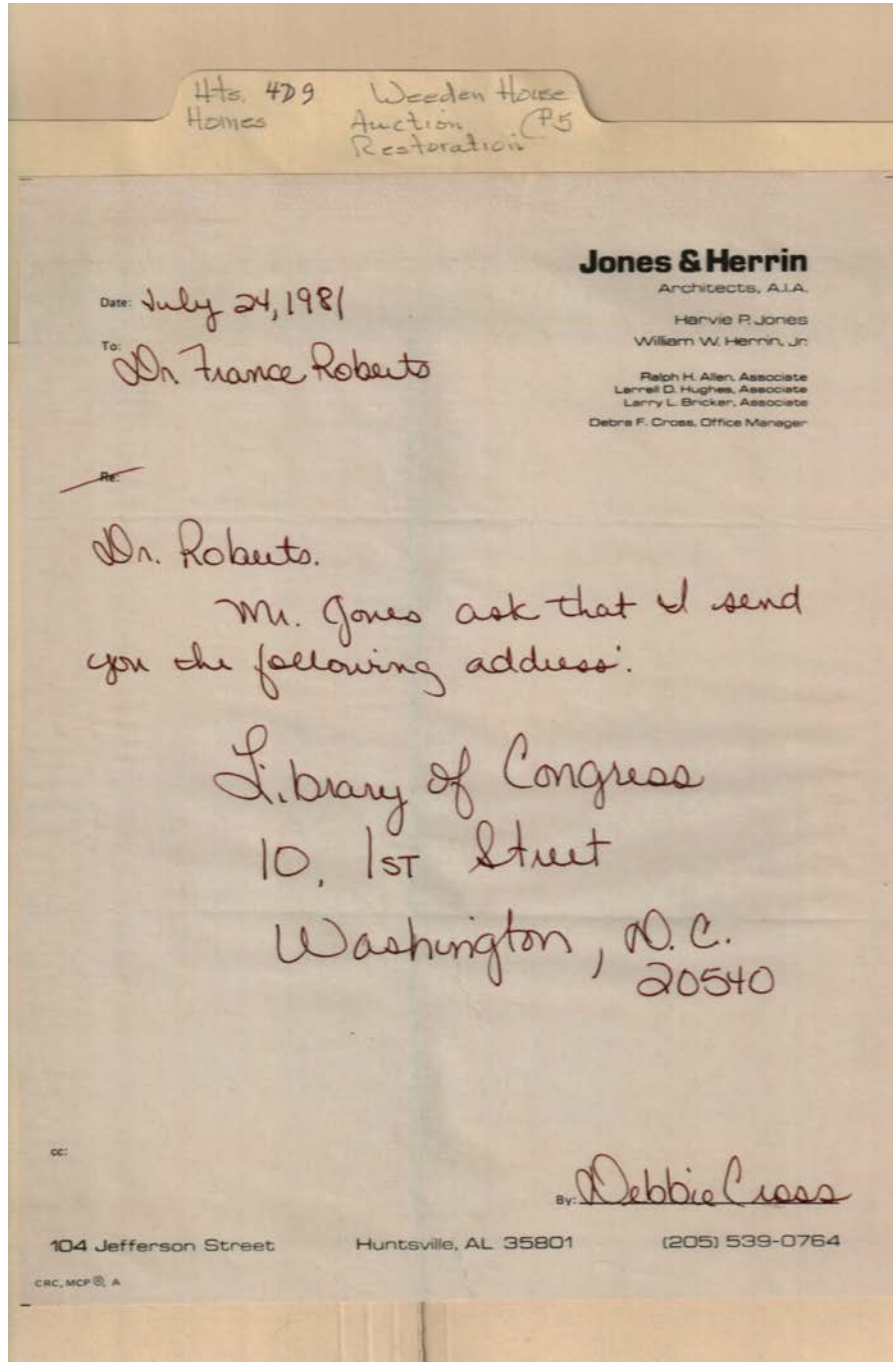 Hts. 4D9 Weeden House
Homes Auction (P5
Restoration
Jones & Herrin
Architects, A.I.A.
Harvie P. Jones
William W. Herrin, Jr.
Ralph H. Allen, Associate
Larrell D. Hughes, Associate
Larry L. Bricker, Associate
Debra F. Cross, Office Manager
Date: July 24, 1981
To:
Dr France Roberts
Re:
Dr. Roberts.
Mr. Jones ask that I send
you the following address:
Library of Congress
10, 1ST Street
Washington, D.C.
20540
cc:
By: Debbie Cross
104 Jefferson Street Huntsville, AL 35801 (205) 539-0764
CRC, MCP ®, A